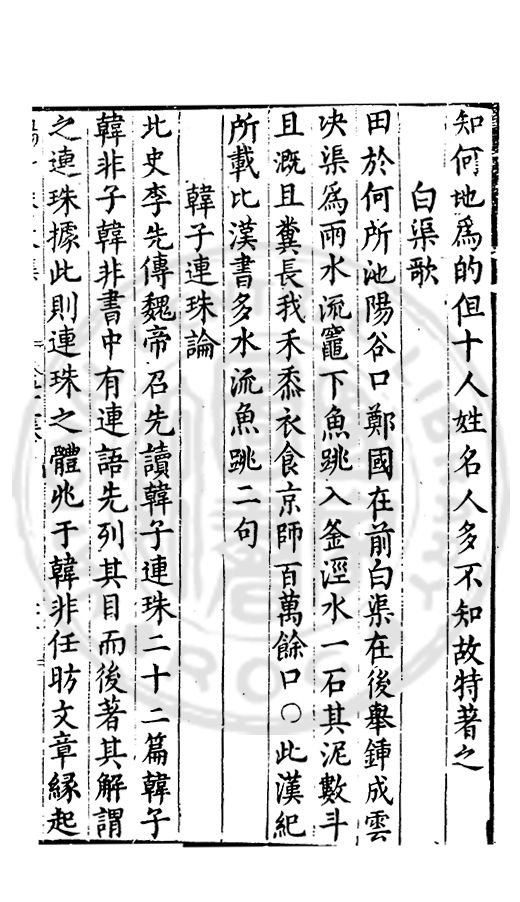 知何地為的但十人姓名人多不知故特著之
白渠歌
田於何所池陽谷口鄭國在前白渠在後舉鍤成雲
决渠為雨水流竈下魚跳入釜涇水一石其泥數斗
且溉且糞長我禾黍衣食京師百萬餘口〇此漢紀
所載比漢書多水流魚跳二句
韓子連珠論
北史李先傳魏帝召先讀韓子連珠二十二篇韓子
韓非子韓非書中有連語先列其目而後著其解謂
之連珠據此則連珠之體兆于韓非任昉文章緣起